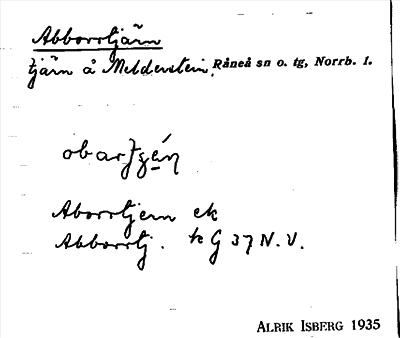 Abborrtjärn
tjärn å Meldenstein, Råneå sn o. tg, Norrb. l.
Aborrtjern ek
Abborrtj. k G 37 N.V.
ALRIK ISBERG 1935